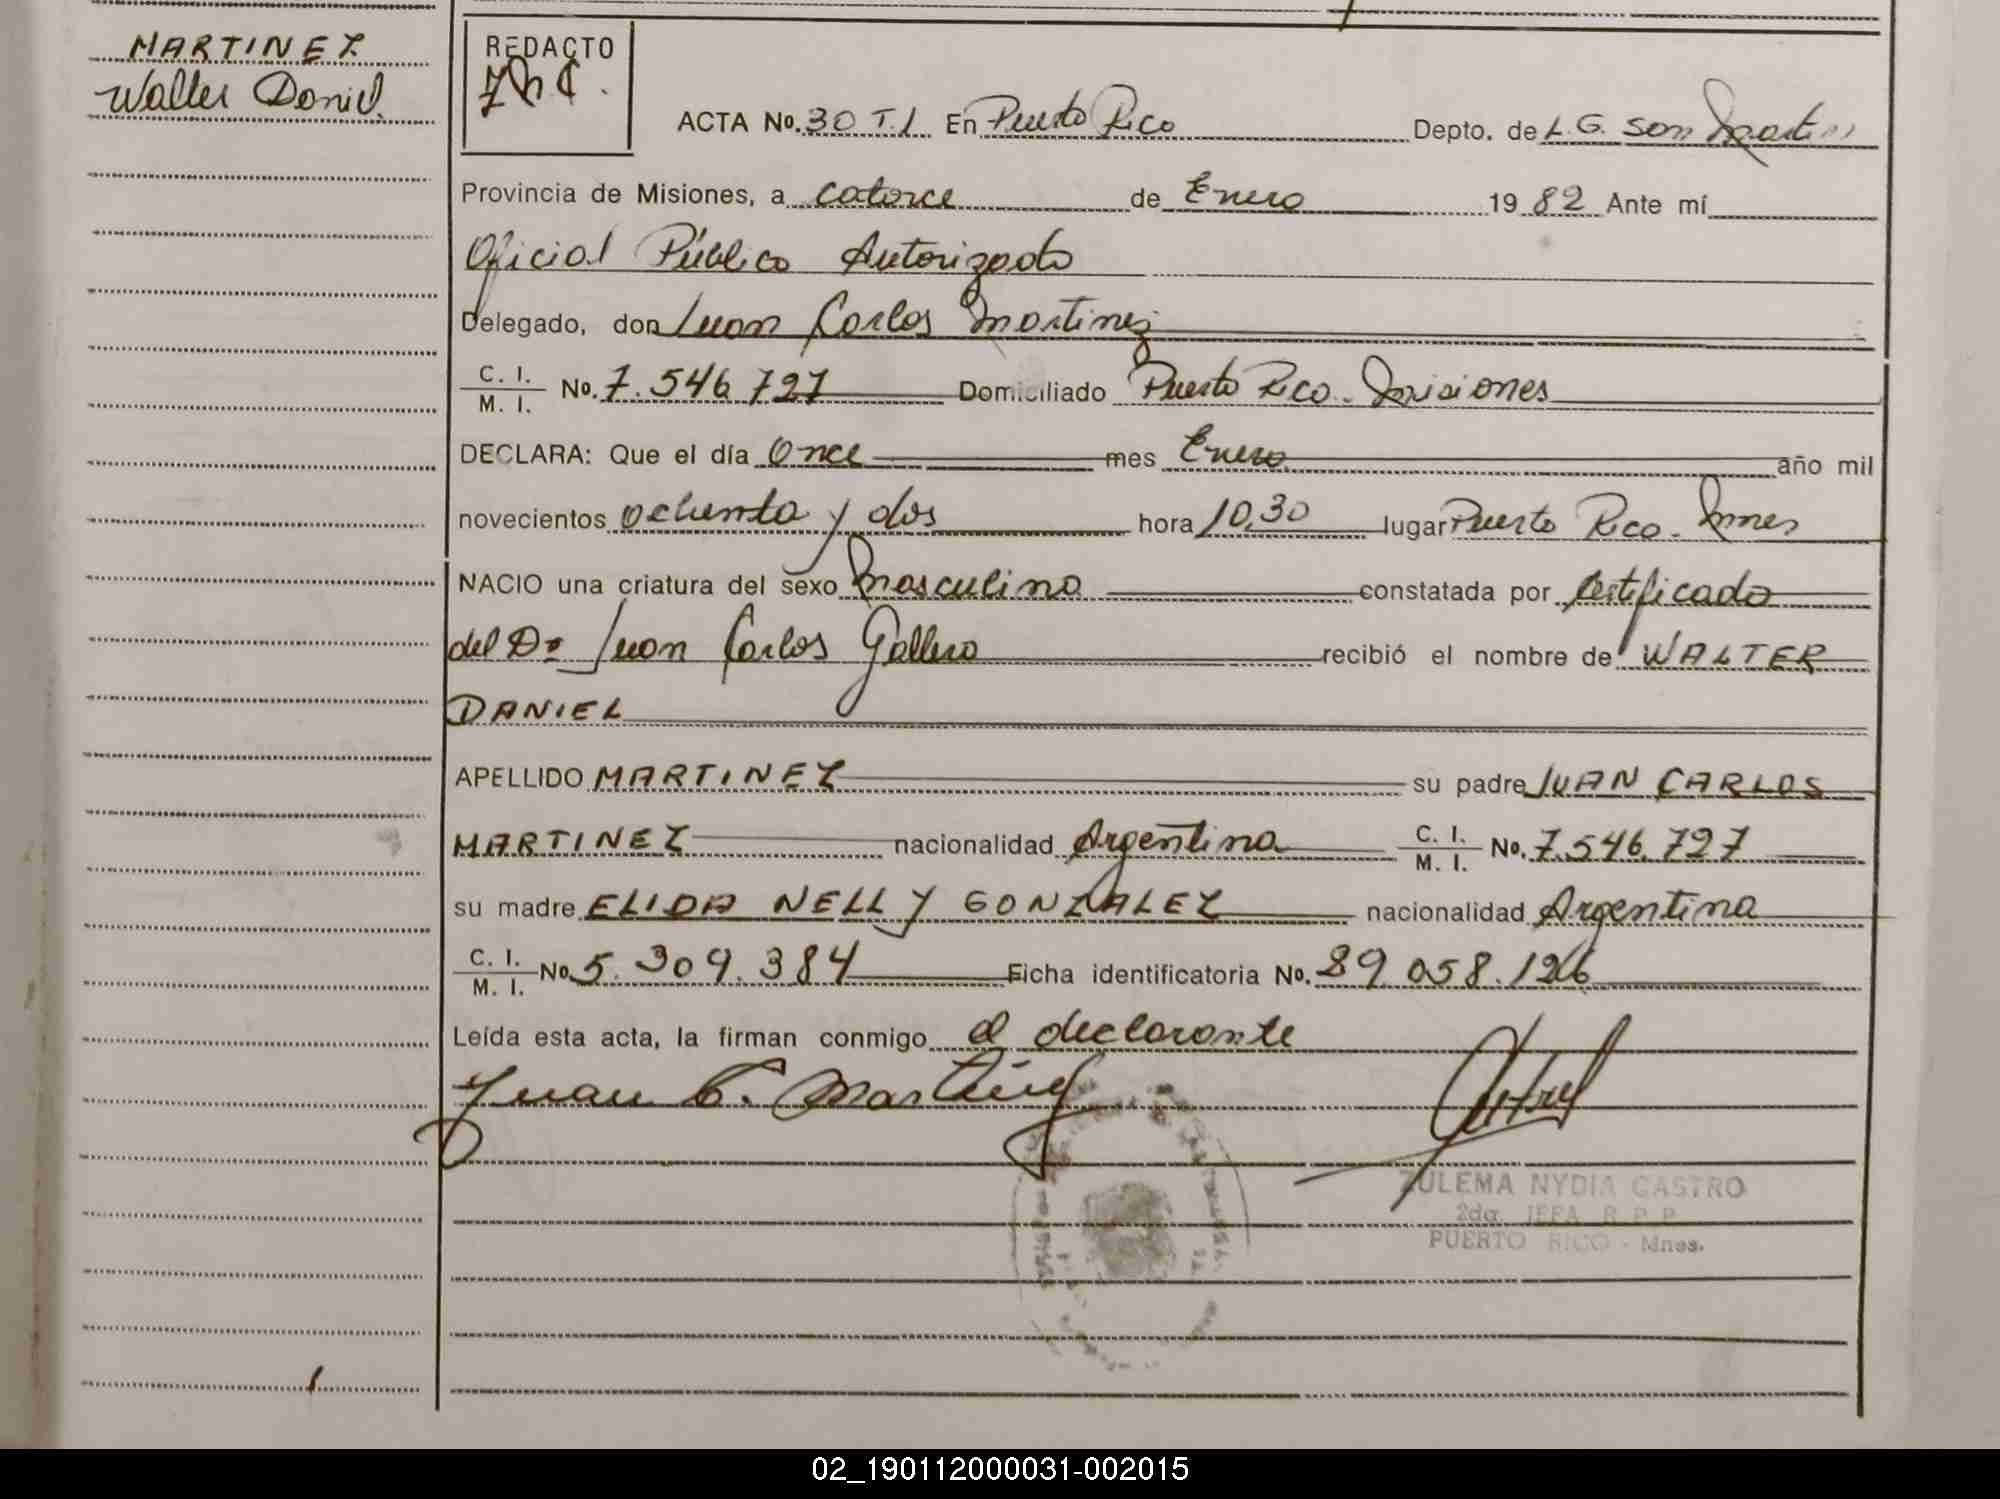 MARTINEZ
Walter Daniel.
REDACTO
ZNC.
ACTA No. 30 T.I En Puerto Rico Depto. de L.G. San Martin
Provincia de Misiones, a catorce de Enero 1982 Ante mí
Oficial Público Autorizado
Delegado, don Juan Carlos Martinez
C. I. / M. I. No. 7.546.727 Domiciliado Puerto Rico - Misiones
DECLARA: Que el día Once mes Enero año mil
novecientos ochenta y dos hora 10,30 lugar Puerto Rico - Mnes
NACIO una criatura del sexo Masculino constatada por certificado
del Dr Juan Carlos Gallero recibió el nombre de WALTER
DANIEL
APELLIDO MARTINEZ su padre JUAN CARLOS
MARTINEZ nacionalidad Argentina C. I. / M. I. No. 7.546.727
su madre ELIDA NELLY GONZALEZ nacionalidad Argentina
C. I. / M. I. No 5.309.384 Ficha identificatoria No. 89.058.126
Leída esta acta, la firman conmigo el declarante
Juan C. Martinez
ZULEMA NYDIA CASTRO
2da. JEFA R.P.P.
PUERTO RICO - Mnes.
02_190112000031-002015